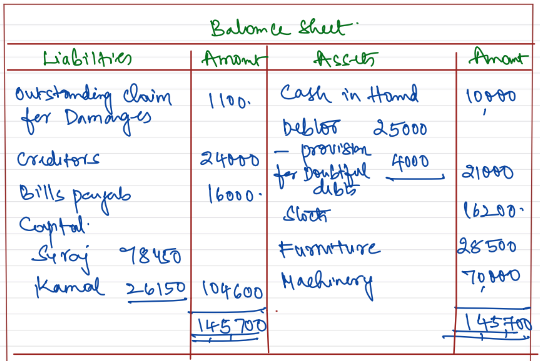 Balance Sheet.
Liabilties Amount Assets Amount
Outstanding claim 1100. Cash in Hand 10,000
for Damanges
Debtor 25000
- provision
for Doubtful 4000 21000
debts
Creditors 24000
Bills payab 16000.
Stock 16200.
Capital.
Siraj 78450
Furniture 28500
Kamal 26150 104600
Machinery 70,000
145700 145700